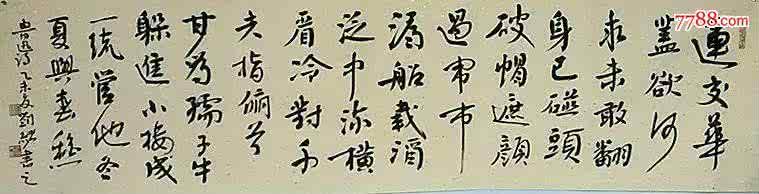 運交華
蓋欲何
求未敢翻
身已碰頭
破帽遮顏
過鬧市
漏船載酒
泛中流橫
眉冷對千
夫指俯首
甘為孺子牛
躲進小樓成
一統管他冬
夏與春秋
魯迅詩 乙未 劉 書之
7788.com